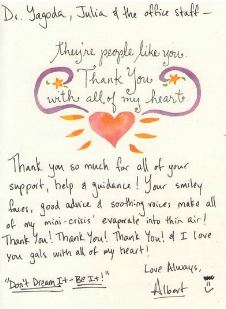 Dr. Yagoda, Julia & the office staff —
they're people like you.
Thank You
with all of my heart
Thank you so much for all of your
support, help & guidance! Your smiley
faces, good advice & soothing voices make all
of my mini-crisis' evaporate into thin air!
Thank You! Thank You! Thank You! & I love
you gals with all of my heart!
Love Always,
"Don't Dream It - Be It!"
Albert